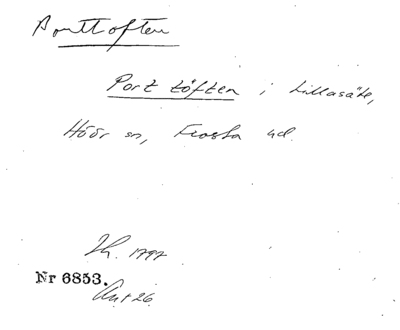 Porttoften
Port töften i Lillasäte,
Höör sn, Frosta hd.
Lh. 1797
Nr 6853.
Akt 26